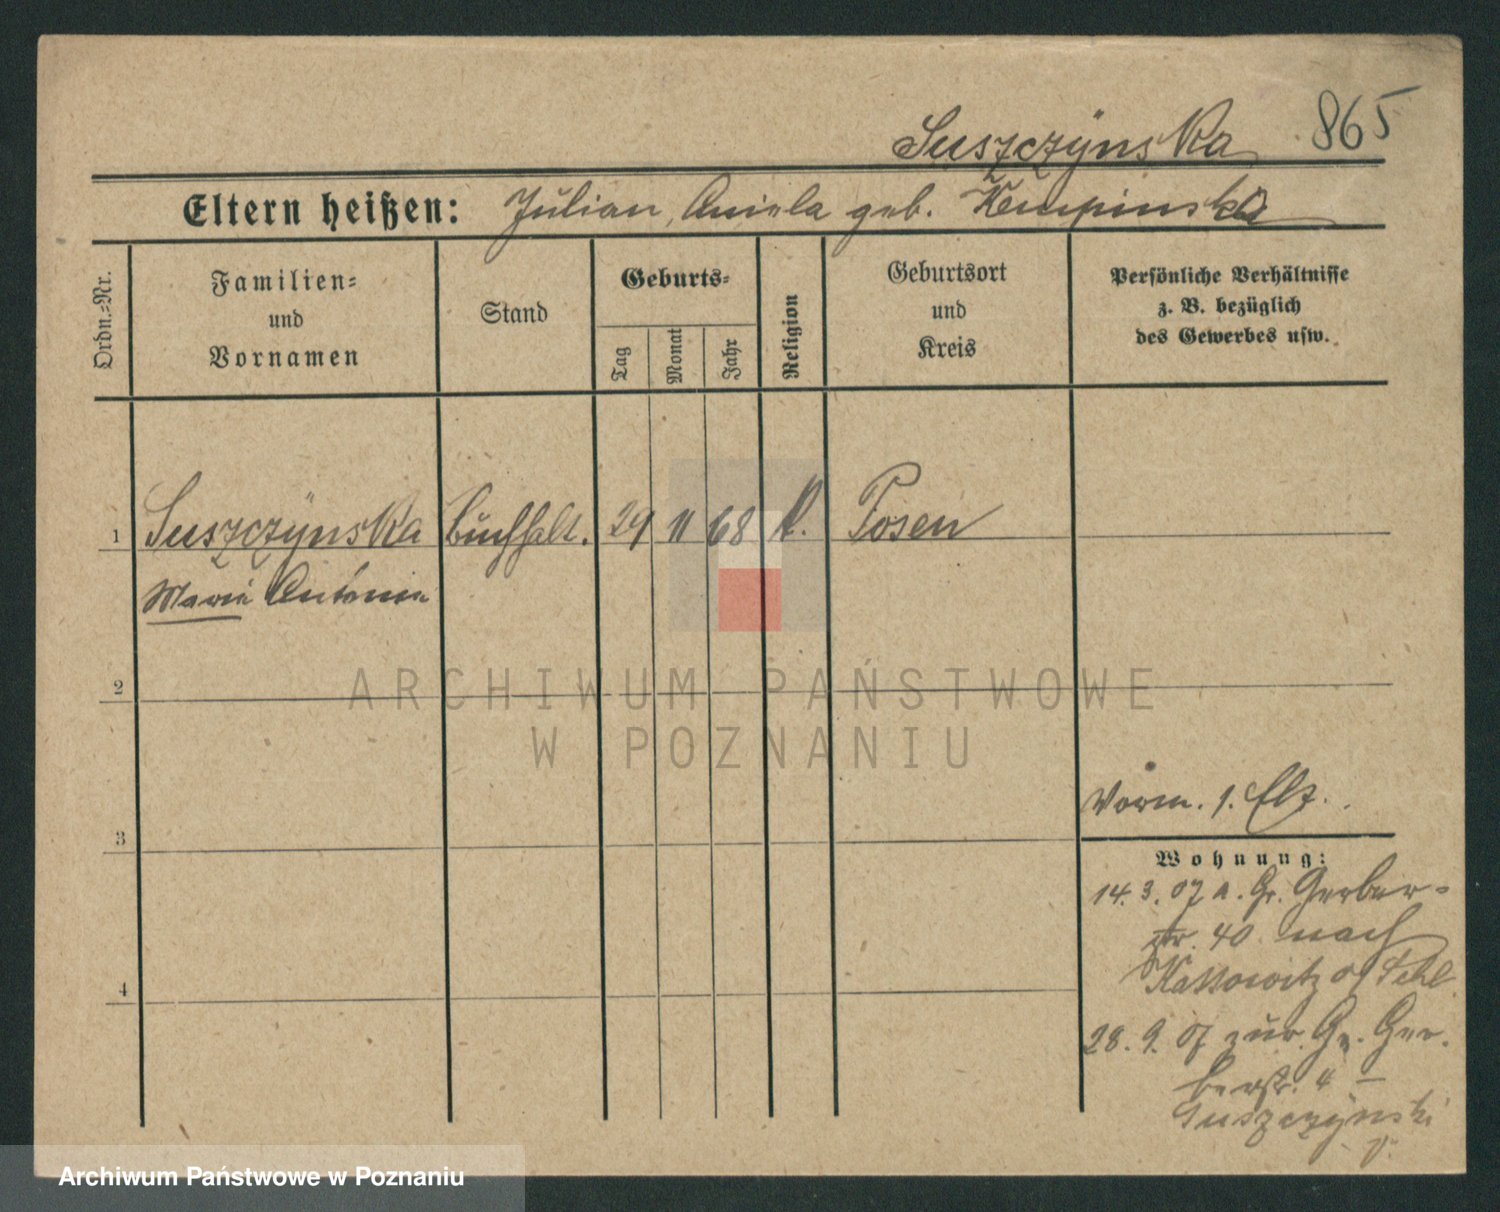 865
Suszczÿnska
Eltern heißen: Julian, Aniela geb. Kempinska
Ordn.-Nr.
Familien-
und
Vornamen
Stand
Geburts-
Tag
Monat
Jahr
Religion
Geburtsort
und
Kreis
Persönliche Verhältnisse
z. B. bezüglich
des Gewerbes usw.
1 Suszczÿnska Buchhalt. 29 11 68 k. Posen
Maria Antonia
2
3
4
Vorm. 1.
Wohnung:
14. 3. 07 a. Gr. Gerber-
str. 40 nach
Kattowitz
28. 9. 07 zur. Gr. Ger-
berstr. 4 –
Suszczynski
v.
ARCHIWUM PAŃSTWOWE
W POZNANIU
Archiwum Państwowe w Poznaniu